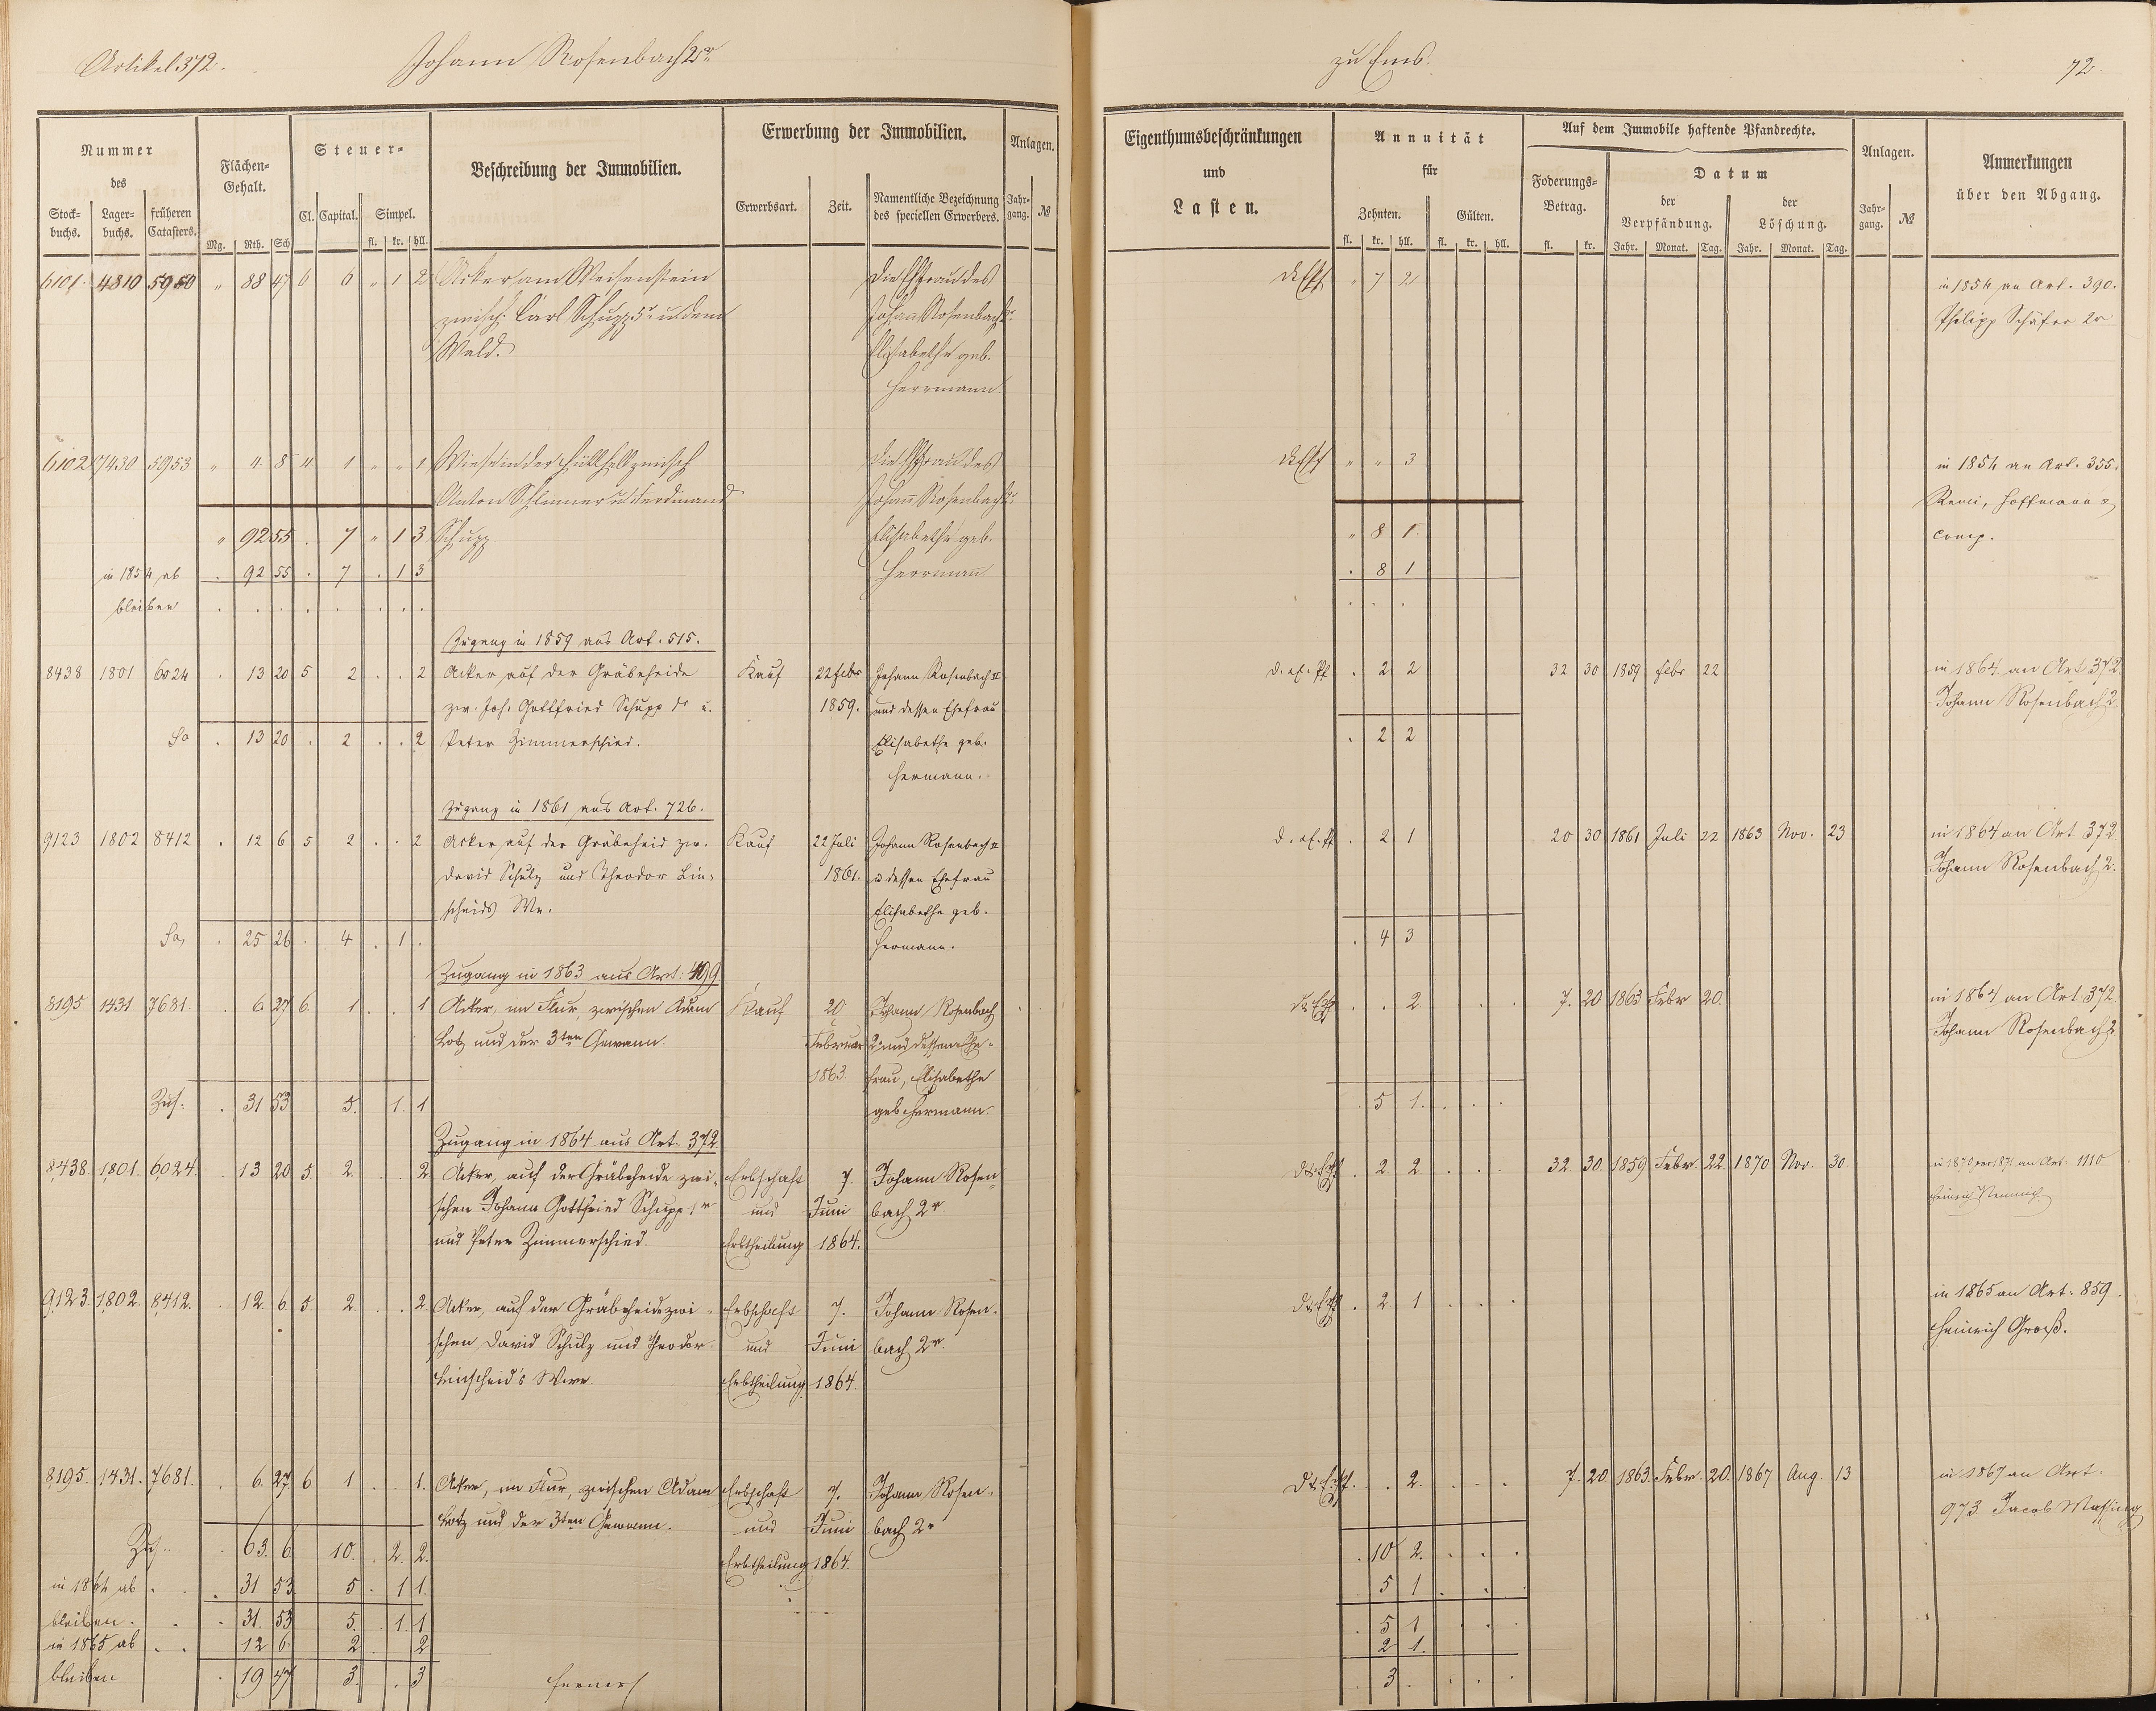 Artikel 372. Johann Rosenbach 2r
zu Ems. 72.
Nummer des
Stock-buchs. Lager-buchs. früheren Catasters.
Flächen-Gehalt.
Mg. Rth. Sch
Steuer-
Cl. Capital. Simpel.
fl. kr. hll.
Beschreibung der Immobilien.
Erwerbung der Immobilien.
Erwerbsart. Zeit. Namentliche Bezeichnung des speciellen Erwerbers.
Anlagen.
Jahr-gang. №
Eigenthumsbeschränkungen und Lasten.
Annuität für
Zehnten. Gülten.
fl. kr. hll. fl. kr. hll.
Auf dem Immobile haftende Pfandrechte.
Foderungs-Betrag.
fl. kr.
Datum
der Verpfändung. der Löschung.
Jahr. Monat. Tag. Jahr. Monat. Tag.
Anlagen.
Jahr-gang. №
Anmerkungen über den Abgang.
6101. 4310 5950 " 88 47 6 6 " 1 2 Acker am Weisenstein die Ehfrau des " 7 2 in 1854 an Art. 390.
zwisch. Carl Schupp 5r u. dem Johann Rosenbach 2r Philipp Schäfer 2r
Wald. Elisabethe geb.
Herrmann
6102 7430 5953 " 4 8 4 1 " " 1 Wiese in der zwisch die Ehfrau des " " 3 in 1854 an Art. 355.
Anton Schlimmer u. Ferdinand Johann Rosenbach 2r Remi, Hoffmann &
" 92 55 . 7 " 1 3 Schupp Elisabethe geb. " 8 1 comp.
in 1854 ab . 92 55 . 7 . 1 3 Herrmann . 8 1
bleiben . . . . . . . . . . .
Zugang in 1859 aus Art. 515.
8438 1801 6024 . 13 20 5 2 . . 2 Acker auf der Gräbeheide Kauf 22 Febr Johann Rosenbach II d. ef. pf . 2 2 32 30 1859 Febr 22 in 1864 an Art 372
zw. Joh. Gottfried Schupp 1r u. 1859. und dessen Ehefrau Johann Rosenbach 2.
Sa . 13 20 . 2 . . 2 Peter Zimmerschied. Elisabethe geb. . 2 2
Hermann.
Zugang in 1861 aus Art. 726.
9123 1802 8412 . 12 6 5 2 . . 2 Acker auf der Gräbeheid zw. Kauf 22 Juli Johann Rosenbach II d. ef. pf . 2 1 20 30 1861 Juli 22 1863 Nov. 23 in 1864 an Art 372
David Schulz und Theodor Lin- 1861. u dessen Ehefrau Johann Rosenbach 2.
scheids We. Elisabethe geb.
Sa, . 25 26 . 4 . 1 . Hermann. . 4 3
Zugang in 1863 aus Art: 499
8195. 1431 7681. . 6 27 6. 1 . . 1 Acker, im Flur, zwischen Adam Kauf 20 Johann Rosenbach . . 2 7. 20 1863 Febr 20. in 1864 an Art. 372
Lotz und der 3ten Gewann. Februar 2r und dessen Ehe- Johann Rosenbach 2
1863. frau, Elisabethe
Zus. . 31 53 5. 1. 1 geb. Hermann. . 5 1. . . .
Zugang in 1864 aus Art. 372
8438. 1801. 6024. 13 20 5 2. . 2. Acker, auf der Gräbeheide zwi- Erbschaft 7. Johann Rosen- . 2 2. . . . 32. 30. 1859 Febr. 22. 1870 Nov. 30. in 1870 per 1871 an Art. 1110
schen Johann Gottfried Schupp 1r und Juni bach 2r Heinrich
und Peter Zimmerschied. Erbtheilung 1864.
9123. 1802. 8412. . 12. 6 5. 2. . . 2. Acker, auf der Gräbeheide zwi- Erbschaft 7. Johann Rosen- . 2 1 . . . in 1865 an Art. 859.
schen David Schulz und Theodor und Juni bach 2r. Heinrich Groß.
Linscheid's Wwe. Erbtheilung 1864.
8195. 1431. 7681. . 6. 27. 6. 1 . . 1. Acker, im Flur, zwischen Adam Erbschaft 7. Johann Rosen- . . 2. . . . 7. 20. 1863. Febr. 20. 1867 Aug. 13 in 1867 an Art.
Lotz und der 3ten Gewann. und Juni bach 2r 973 Jacob Massing
Zus.. . 63. 6 10. . 2. 2. Erbtheilung 1864. . 10 2. . . .
in 1864 ab . . . 31 53 5 . 1 1. 5 1 . . .
bleiben. . . 31. 53 5. . 1. 1 . 5 1 . .
in 1865 ab . . 12 6. 2 2 2 1.
bleiben . 19 47 3. . 3 ferner . 3 . . . .